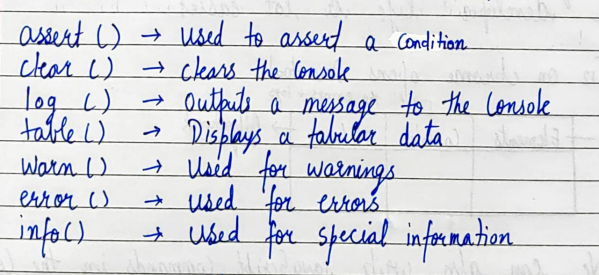 assert () → used to assert a Condition
clear () → clears the console
log () → Outputs a message to the Console
table () → Displays a tabular data
Warn () → Used for warnings
error () → used for errors
info() → Used for special information